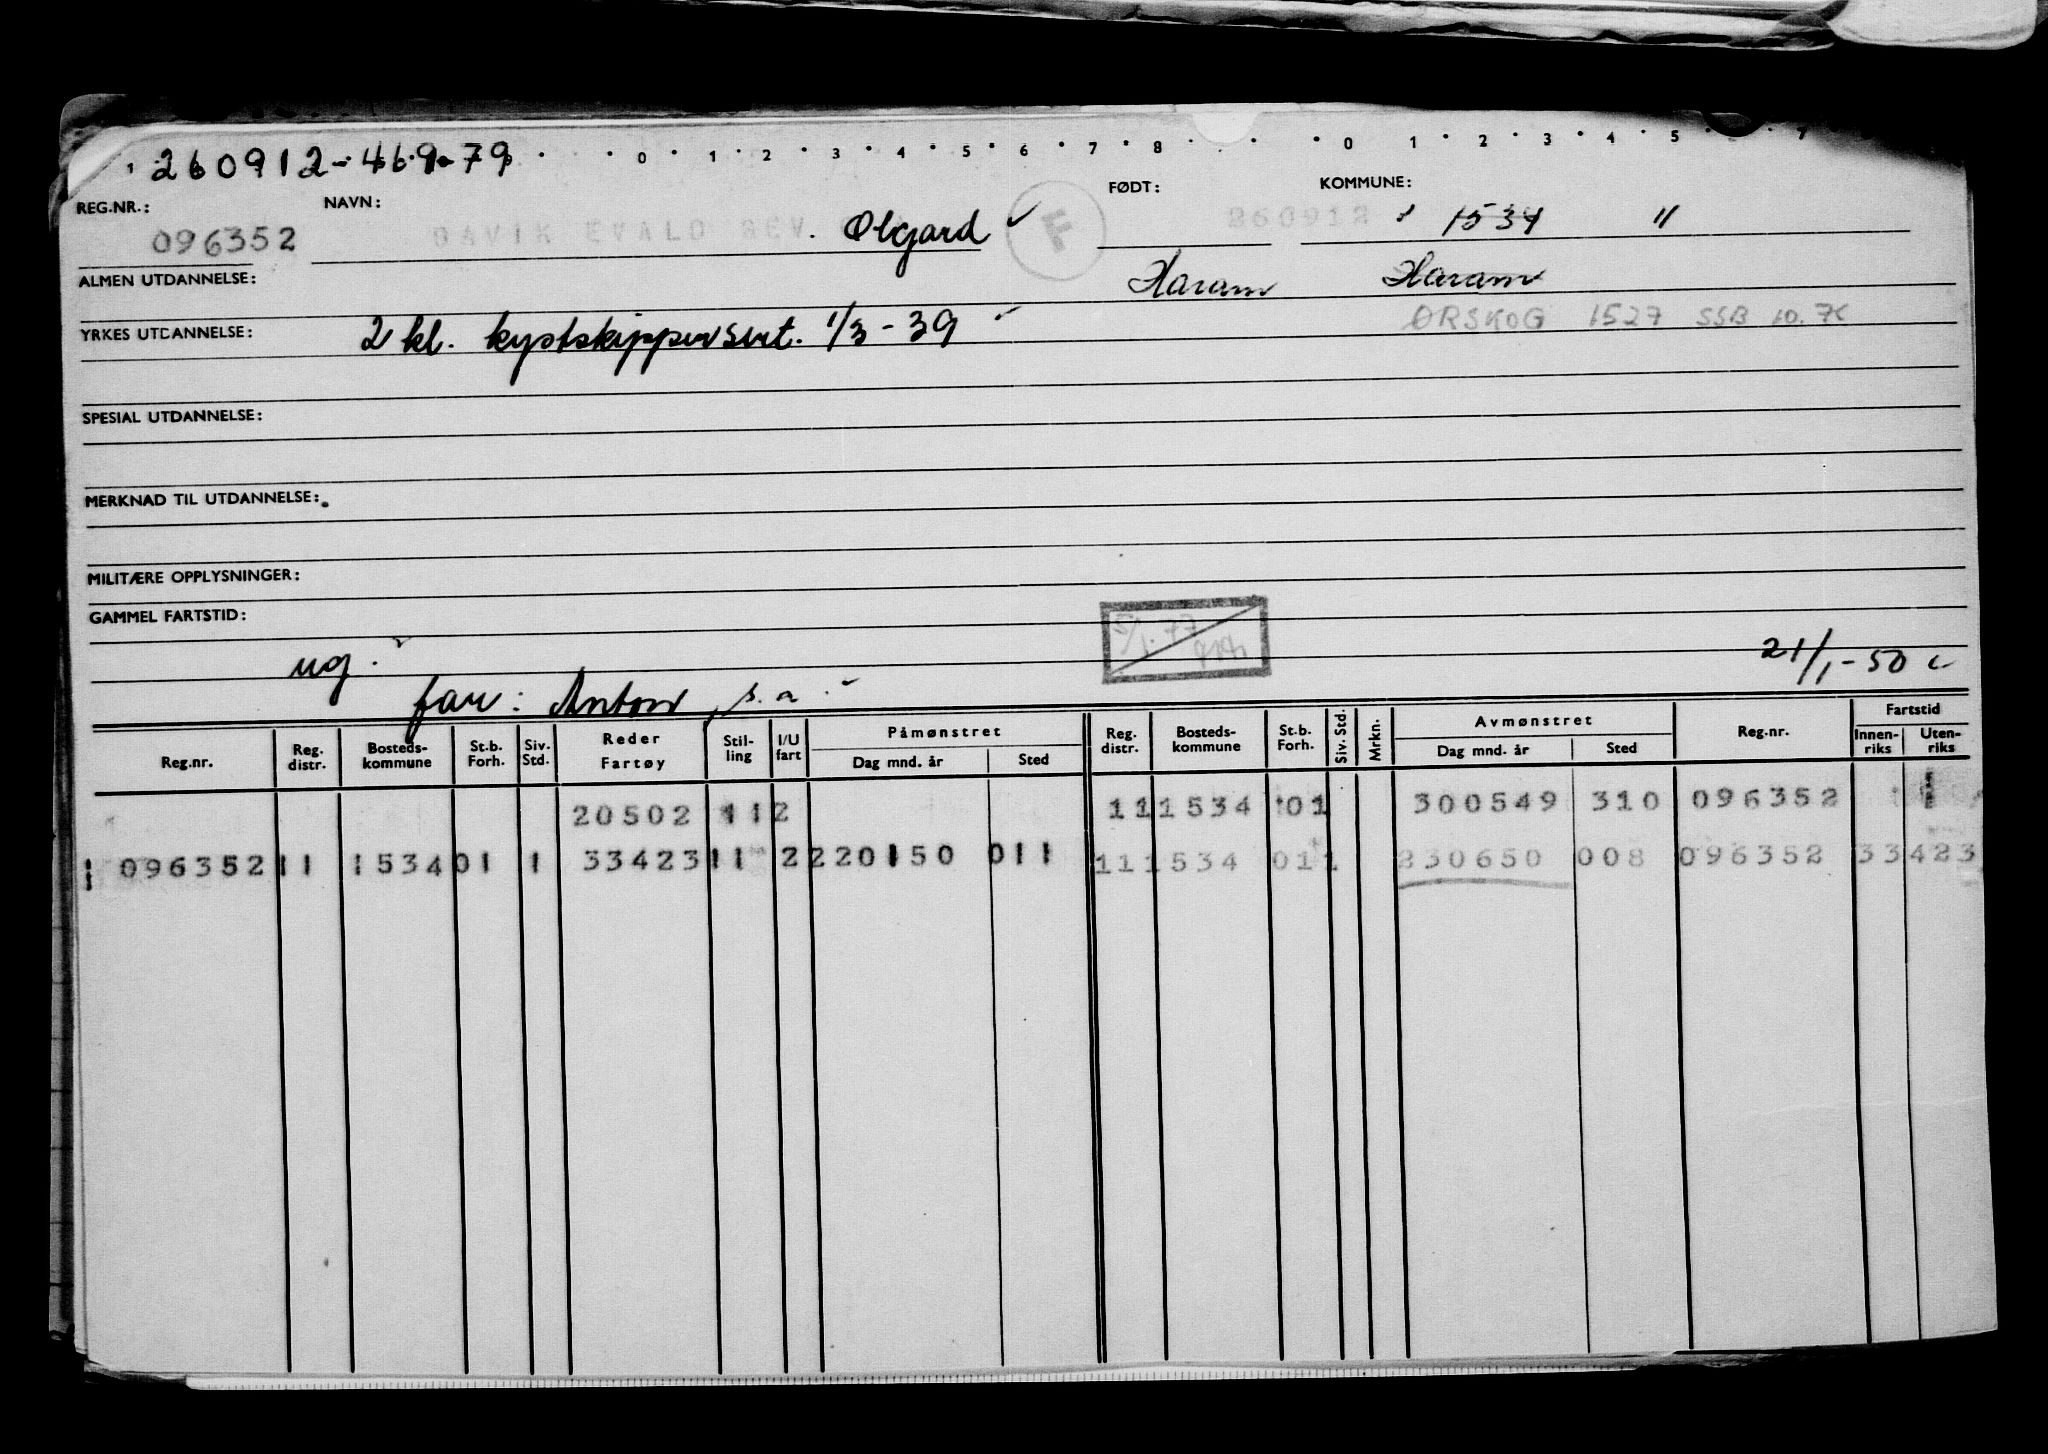 260912-469-79
0 1 2 3 4 5 6 7 8 0 1 2 3 4 5 7
REG.NR.: NAVN: FØDT: KOMMUNE:
096352 DAVIK EVALD REV. Olgard F 260912 1534 "
ALMEN UTDANNELSE: Haram Haram
YRKES UTDANNELSE: 2 kl. kystskippersert. 1/3-39 ØRSKOG 1527 SSB 10.76
SPESIAL UTDANNELSE:
MERKNAD TIL UTDANNELSE:
MILITÆRE OPPLYSNINGER:
GAMMEL FARTSTID:
5/1.77
ug. 21/1-50
far: Anton, s.a.
Reg.nr. Reg. distr. Bosteds-kommune St.b. Forh. Siv. Std. Reder Fartøy Stil-ling I/U fart Påmønstret Dag mnd. år Sted Reg. distr. Bosteds-kommune St.b. Forh. Siv. Std. Mrkn. Avmønstret Dag mnd. år Sted Reg.nr. Fartstid Innen-riks Uten-riks
20502 11 2 11 1534 01 300549 310 096352
096352 11 1534 01 1 33423 11 2 220150 011 11 1534 01 1 230650 008 096352 33423